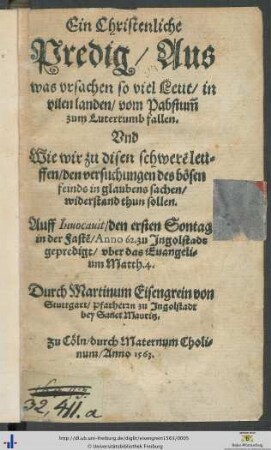 Ein Christenliche
Predig / Aus
was vrsachen so viel Leut / in
vilen landen / vom Pabstum̃
zum Luterrumb fallen.
Vnd
Wie wir zu disen schwerē leuf-
fen / den versuchungen des bösen
feinds in glaubens sachen /
widerstand thun sollen.
Auff Innocauit / den ersten Sontag
in der Fastē / Anno 62. zu Jngolstadt
gepredigt / vber das Euangeli-
um Matth. 4.
Durch Martinum Eisengrein von
Stuttgart / Pfarherrn zu Jngolstadt
bey Sanct Mauritz.
Zu Cöln / durch Maternum Choli-
num / Anno 1563.
32, 411. a
http://dl.ub.uni-freiburg.de/diglit/eisengrein1563/0005
© Universitätsbibliothek Freiburg